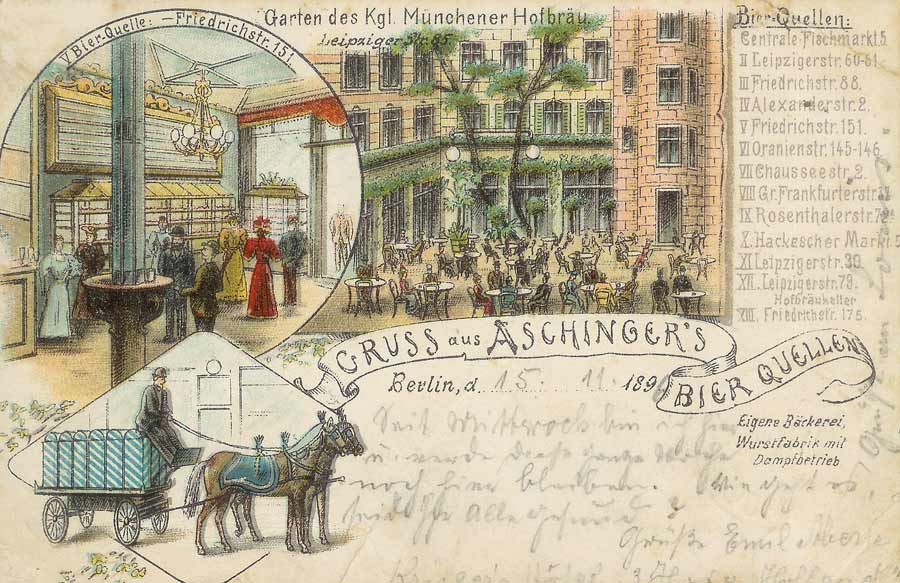 V Bier-Quelle: - Friedrichstr. 151.
Garten des Kgl. Münchener Hofbräu
Leipziger-Str. 85
Bier-Quellen:
Centrale Fischmarkt 5
II Leipzigerstr. 60-61
III Friedrichstr. 88.
IV Alexanderstr. 2.
V Friedrichstr. 151.
VI Oranienstr. 145-146
VII Chausseestr. 2.
VIII Gr. Frankfurterstr.
IX Rosenthalerstr. 72
X. Hackescher Markt 5
XI Leipzigerstr. 30
XII. Leipzigerstr. 79.
Hofbräukeller
XIII. Friedrichstr. 175.
GRUSS aus ASCHINGER'S
BIER QUELLEN
Berlin, d. 15. 11. 189
Eigene Bäckerei,
Wurstfabrik mit
Dampfbetrieb
Seit Mittwoch bin ich hier
u. werde diese ganze Woche
noch hier bleiben. Wie geht es,
seid Ihr alle gesund?
Grüße Emil